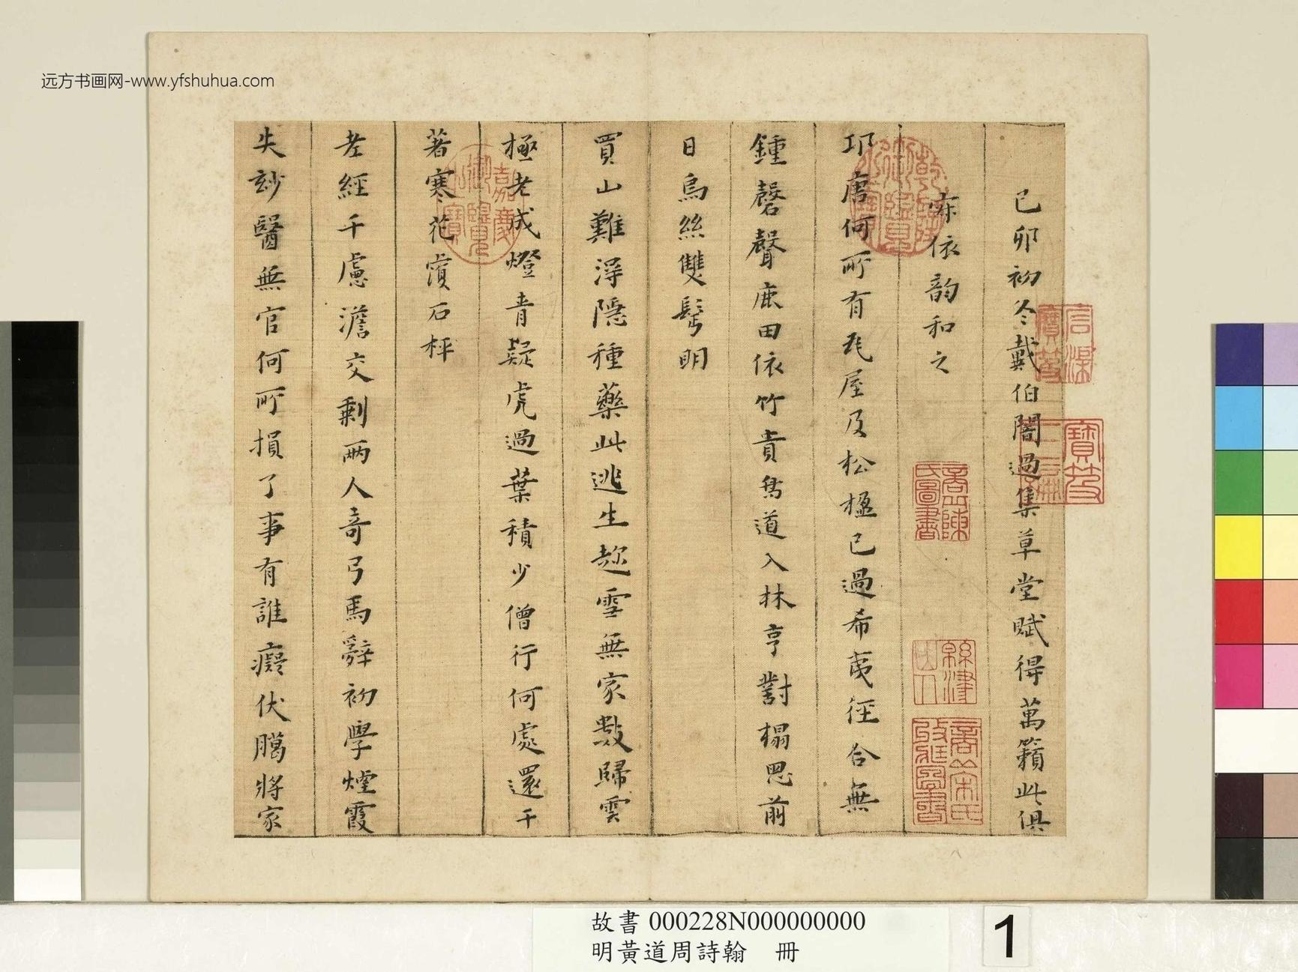 远方书画网-www.yfshuhua.com
己卯初冬戴伯闇過集草堂賦得萬籟此俱
寂依韵和之
邛廬何所有瓦屋及松楹已過希夷徑合無
鍾磬聲庶田依竹責芻道入林亨對榻思前
日烏絲雙髩明
買山難淂隱種藥此逃生趂雪無家數歸雲
極老成燈青疑虎過葉積少僧行何處還千
著寒花復石枰
老經千慮澹交剩兩人奇弓馬辭初學煙霞
失玅醫無官何所損了事有誰癡伏臈將家
乾隆御覽之寶
嘉慶御覽之寶
故書 000228N000000000
明黃道周詩翰 冊
1